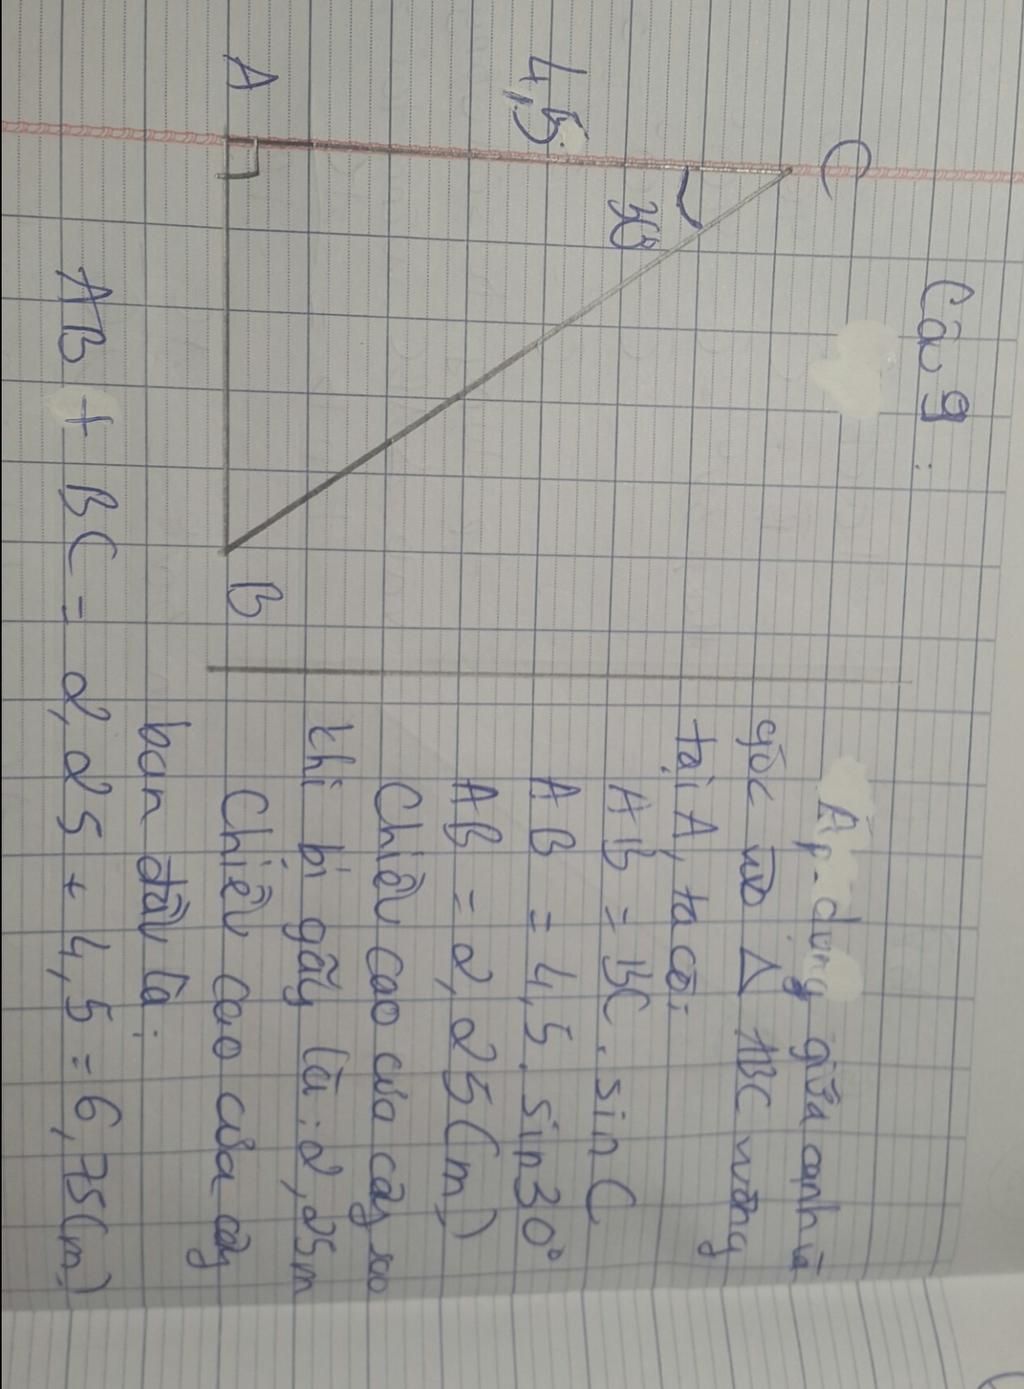 Câu 9 :
C
30°
4,5
A
B
Áp dụng giữa cạnh và
góc vào Δ ABC vuông
tại A, ta có:
AB = BC . sin C
AB = 4,5 . sin 30°
AB = 2,25 (m)
Chiều cao của cây sau
khi bị gãy là : 2,25m
Chiều cao của cây
ban đầu là :
AB + BC = 2,25 + 4,5 = 6,75(m)